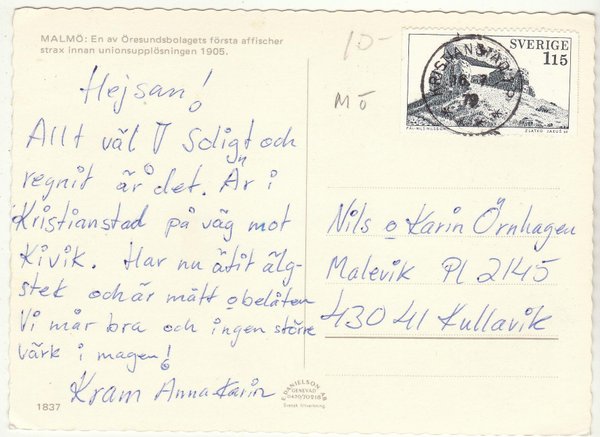 MALMÖ: En av Öresundsbolagets första affischer
strax innan unionsupplösningen 1905.
Hejsan!
Allt väl! Soligt och
regnit är det. Är i
Kristianstad på väg mot
Kivik. Har nu ätit älg-
stek och är mätt o belåten
Vi mår bra och ingen större
värk i magen!
Kram AnnaKarin
1837
10-
MÖ
SVERIGE
115
KRISTIANSTAD
79
PÅL-NILS NILSSON
ZLATKO JAKUŠ SC
Nils o Karin Örnhagen
Malevik Pl 2145
430 41 Kullavik
E. DANIELSON AB
GENEVAD
0430/70218
Svensk tillverkning